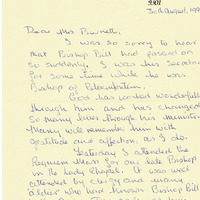 30th August, 199
Dear Mrs Burnett,
I was so sorry to hear
that Bishop Bill had passed on
so suddenly. I was his secretary
for some time while he was
Bishop of Bloemfontein.
God has worked wonderfully
through him and has changed
so many lives through his ministry.
Many will remember him with
gratitude and affection, as I do.
Yesterday I attended the
Requiem Mass for our late Bishop
in the Lady Chapel. It was well
attended by clergy and many
others who had known Bishop Bill